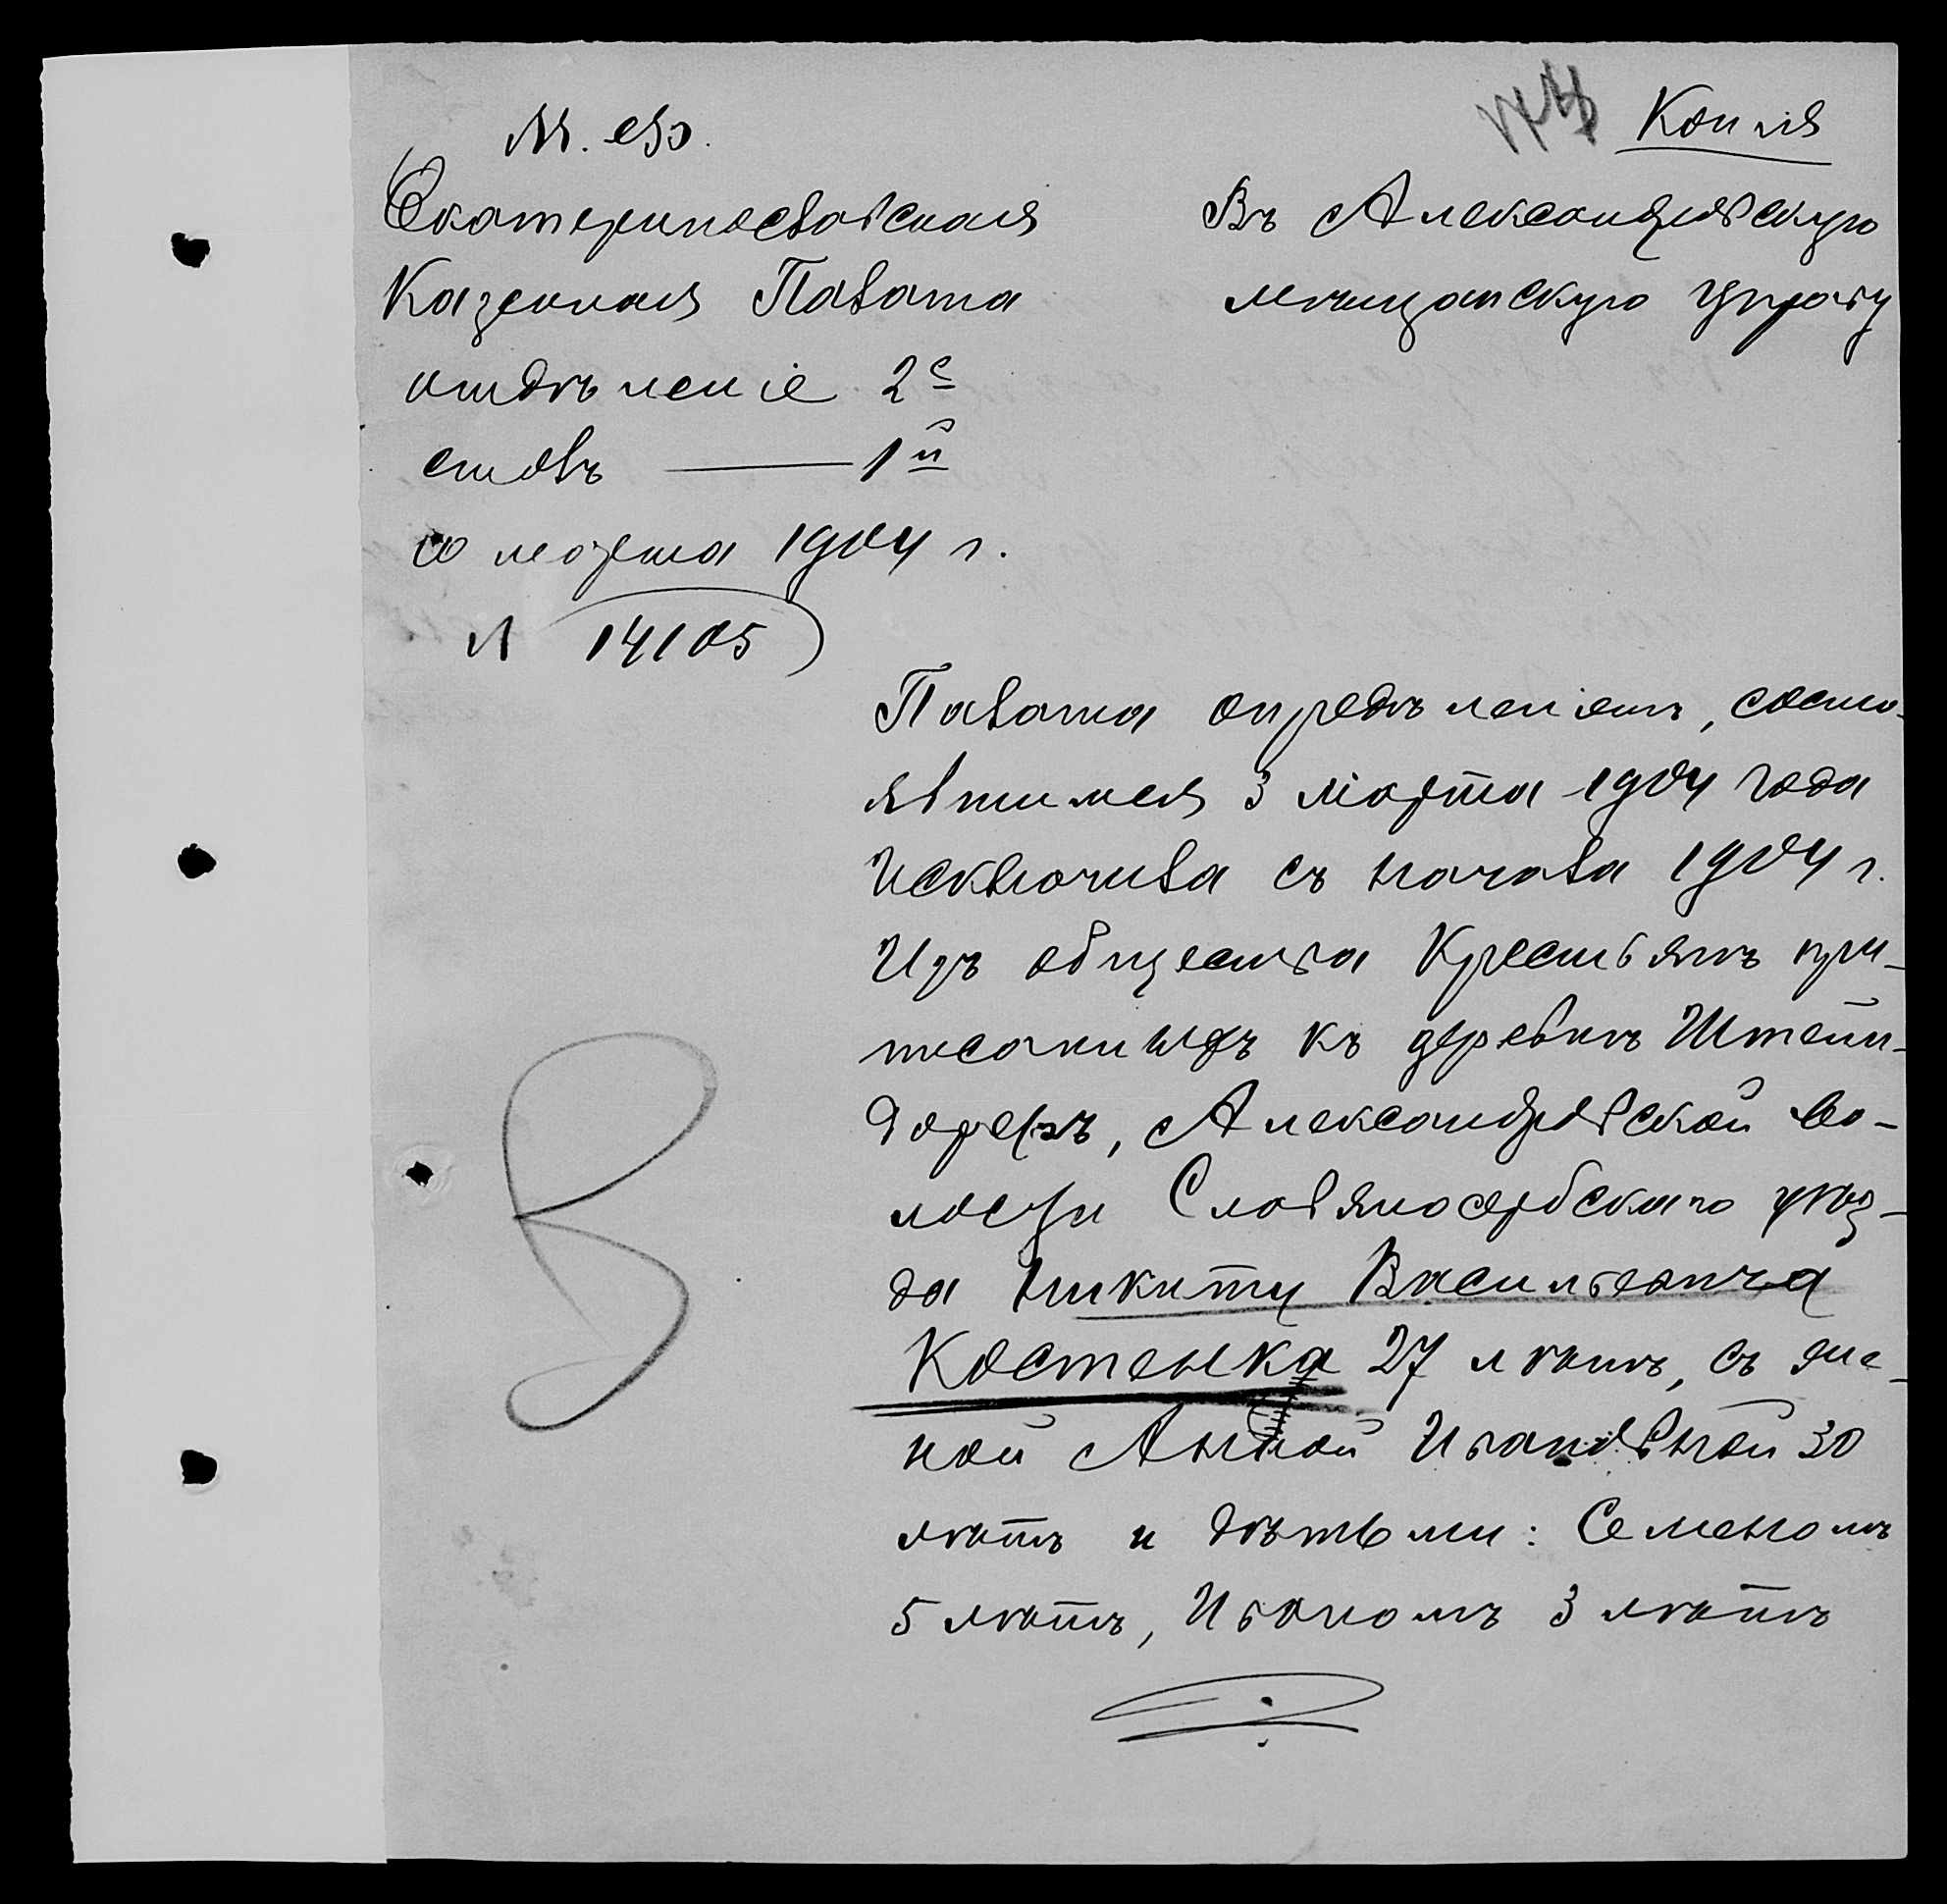 Копія
М. Ф.
Екатеринославская
Казенная Палата
отдѣленіе 2е
столъ — 1й
10 марта 1904 г.
№ 14105
Въ Александровскую
мѣщанскую управу
Палата опредѣленіемъ, состо-
явшимся 3 марта 1904 года
Исключила съ начала 1904 г.
Изъ общества Крестьянъ при-
писанныхъ къ деревнѣ Штейн-
дорфъ, Александровской во-
лости Славяносербскаго уѣз-
да Никиту Васильевича
Костенка 27 лѣтъ, съ же-
ной Анной Ивановной 30
лѣтъ и дѣтьми: Семеномъ
5 лѣтъ, Иваномъ 3 лѣтъ